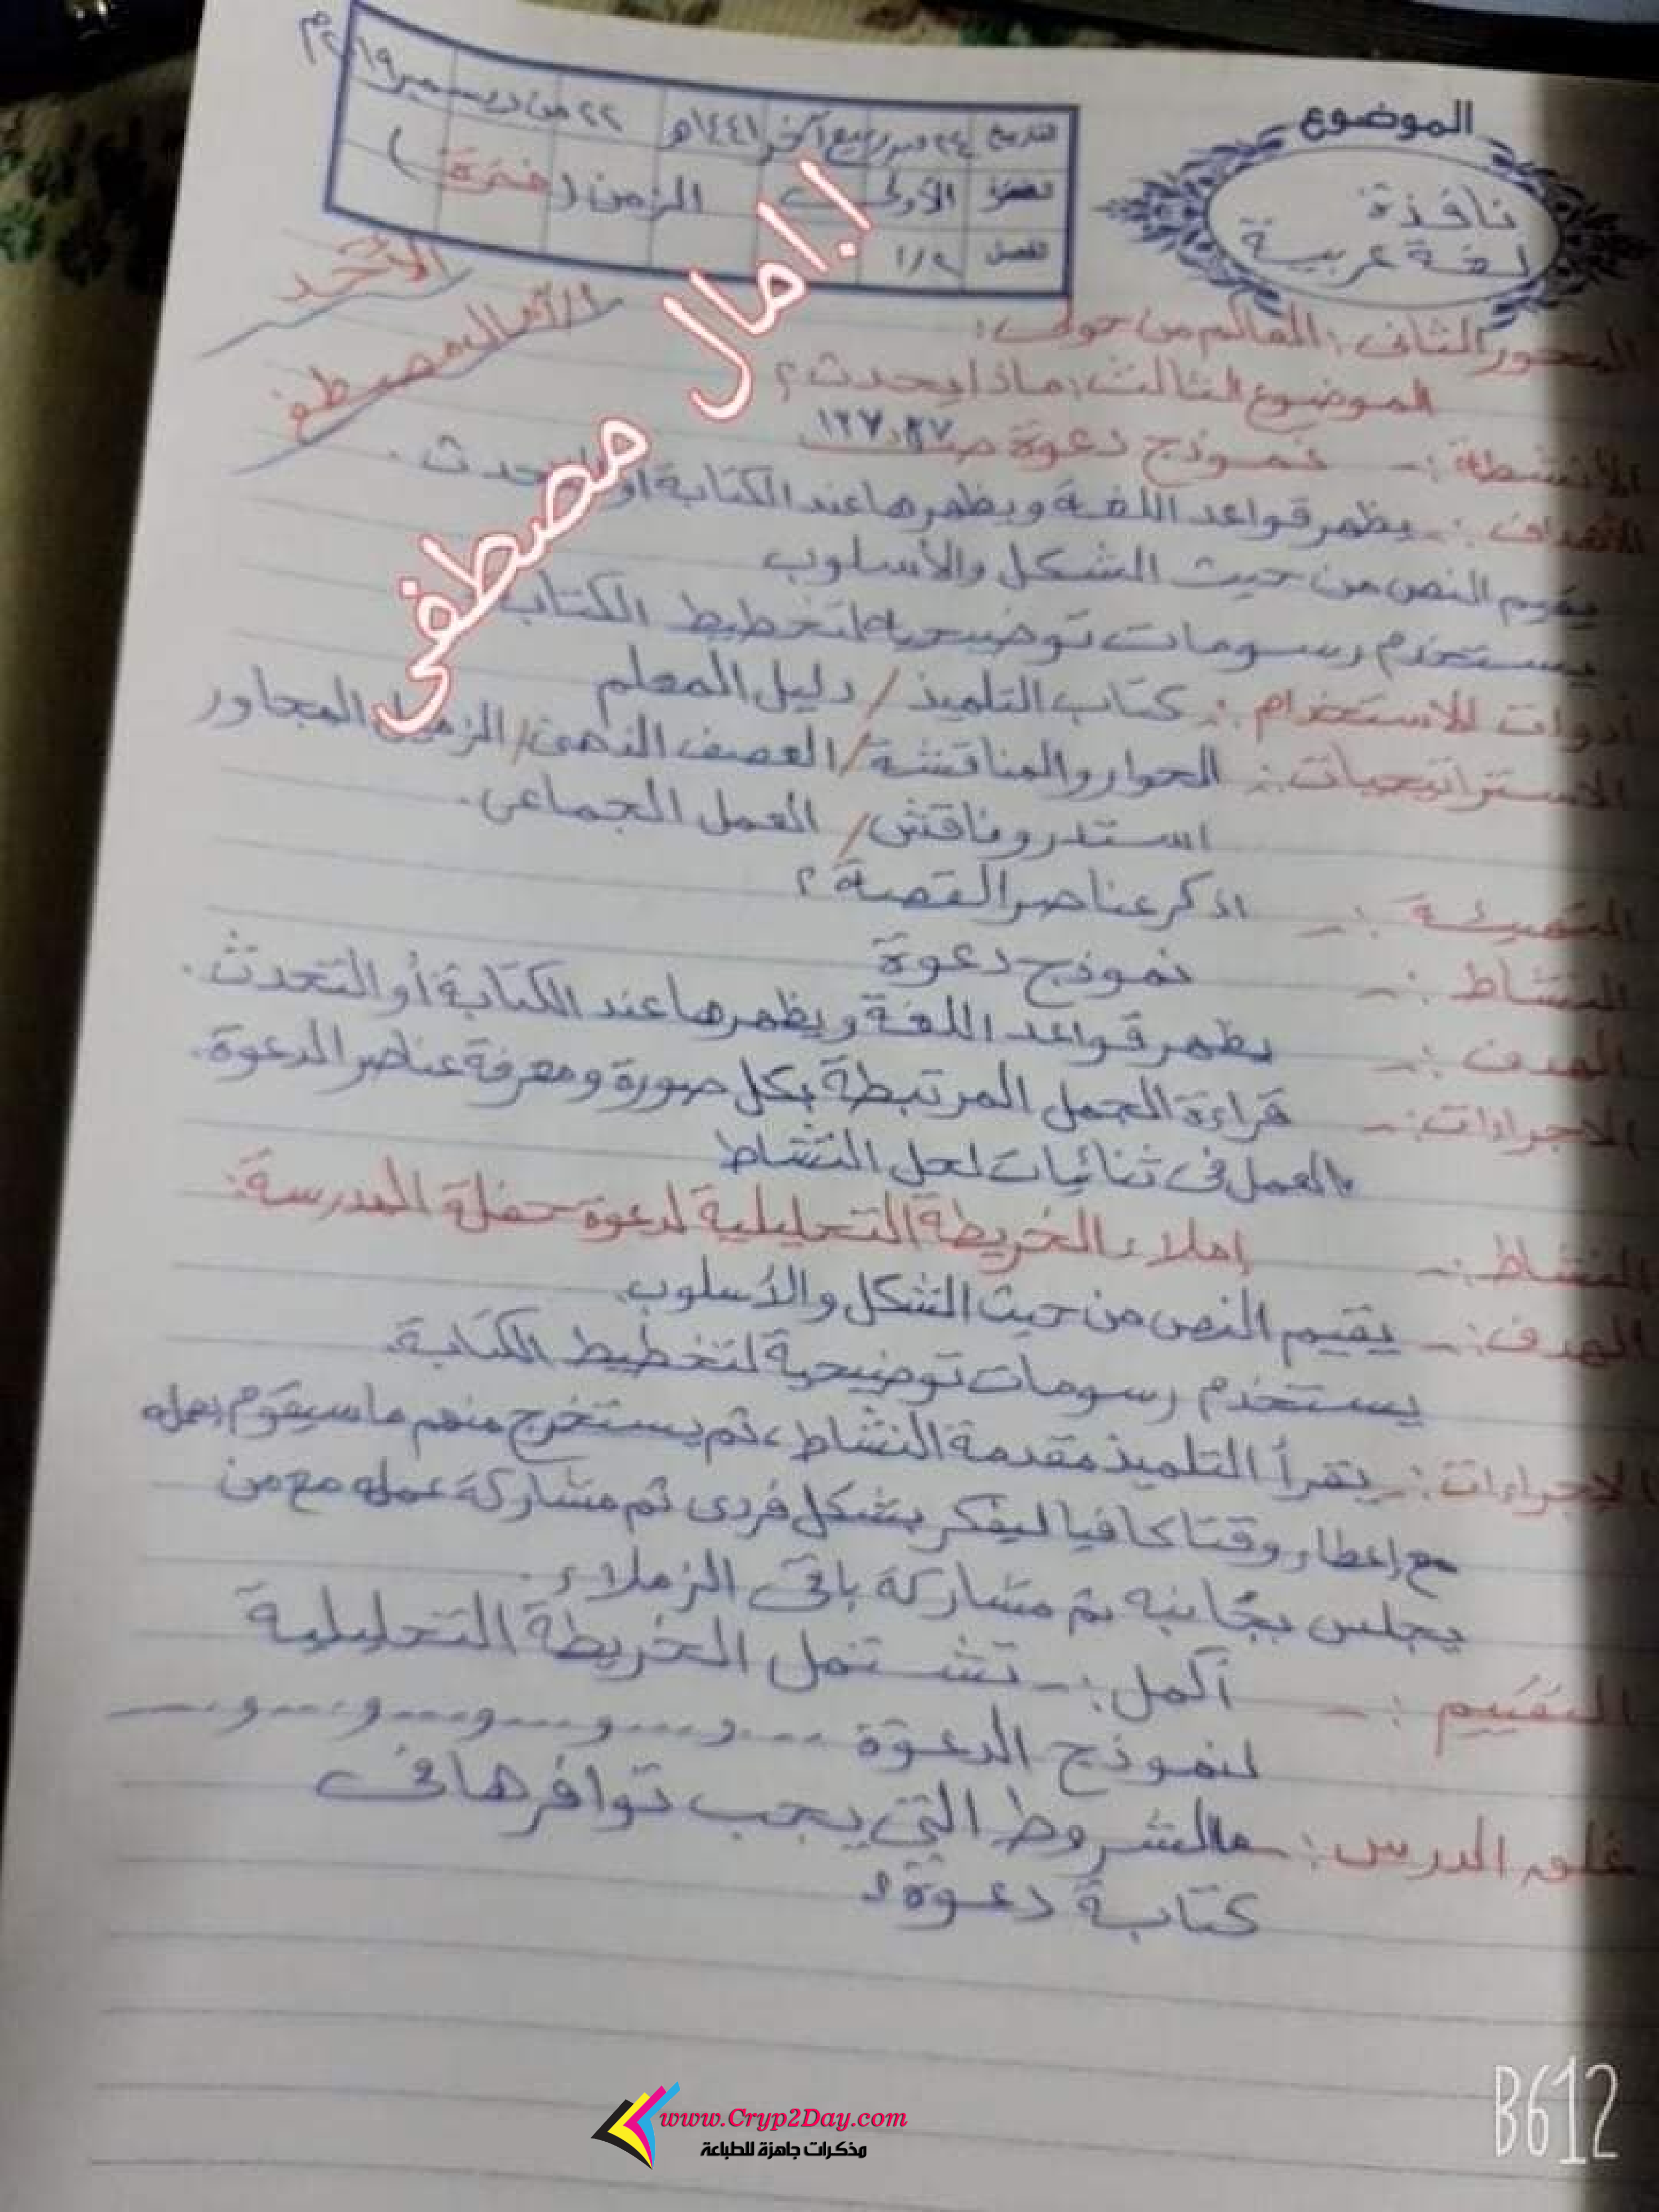 الموضوع
نافذة
لغة عربية
التاريخ ٢٤ من ربيع آخر ١٤٤١هـ ٢٢ من ديسمبر ٢٠١٩م
الفترة الأولى الزمن (فترة)
الفصل ١/٢
الأحد
أ/آمال مصطفى
ا.امال مصطفى
المحور الثانى : العالم من حولى :
الموضوع الثالث : ماذا يحدث ؟
الأنشطة :- نموذج دعوة صـ
الأهداف :- يظهر قواعد اللغة ويظهرها عند الكتابة أو التحدث .
يقيم النص من حيث الشكل والأسلوب
يستخدم رسومات توضيحية لتخطيط الكتاب
أدوات للاستخدام :- كتاب التلميذ / دليل المعلم
الاستراتيجيات :- الحوار والمناقشة / العصف الذهنى / الزميل المجاور
استدر وناقش / العمل الجماعى .
التهيئة :- اذكر عناصر القصة ؟
النشاط :- نموذج دعوة
الهدف :- يظهر قواعد اللغة ويظهرها عند الكتابة أو التحدث .
الاجراءات :- قراءة الجمل المرتبطة بكل صورة ومعرفة عناصر الدعوة .
العمل فى ثنائيات لحل النشاط
النشاط :- املاء الخريطة التحليلية لدعوة حفلة المدرسة :
الهدف :- يقيم النص من حيث الشكل والأسلوب
يستخدم رسومات توضيحية لتخطيط الكتابة .
الاجراءات :- يقرأ التلميذ مقدمة النشاط ، ثم يستخرج منهم ما سيقوم بعمله
مع إعطاء وقتا كافيا ليفكر بشكل فردى ثم مشاركة عمله مع من
يجلس بجانبه ثم مشاركة باقى الزملاء .
التقييم :- أكمل :- تشتمل الخريطة التحليلية
لنموذج الدعوة ..... و ..... و ..... و ..... و ..... و .....
غلق الدرس :- ما الشروط التي يجب توافرها فى
كتابة دعوة ؟
B612
www.Cryp2Day.com
مذكرات جاهزة للطباعة